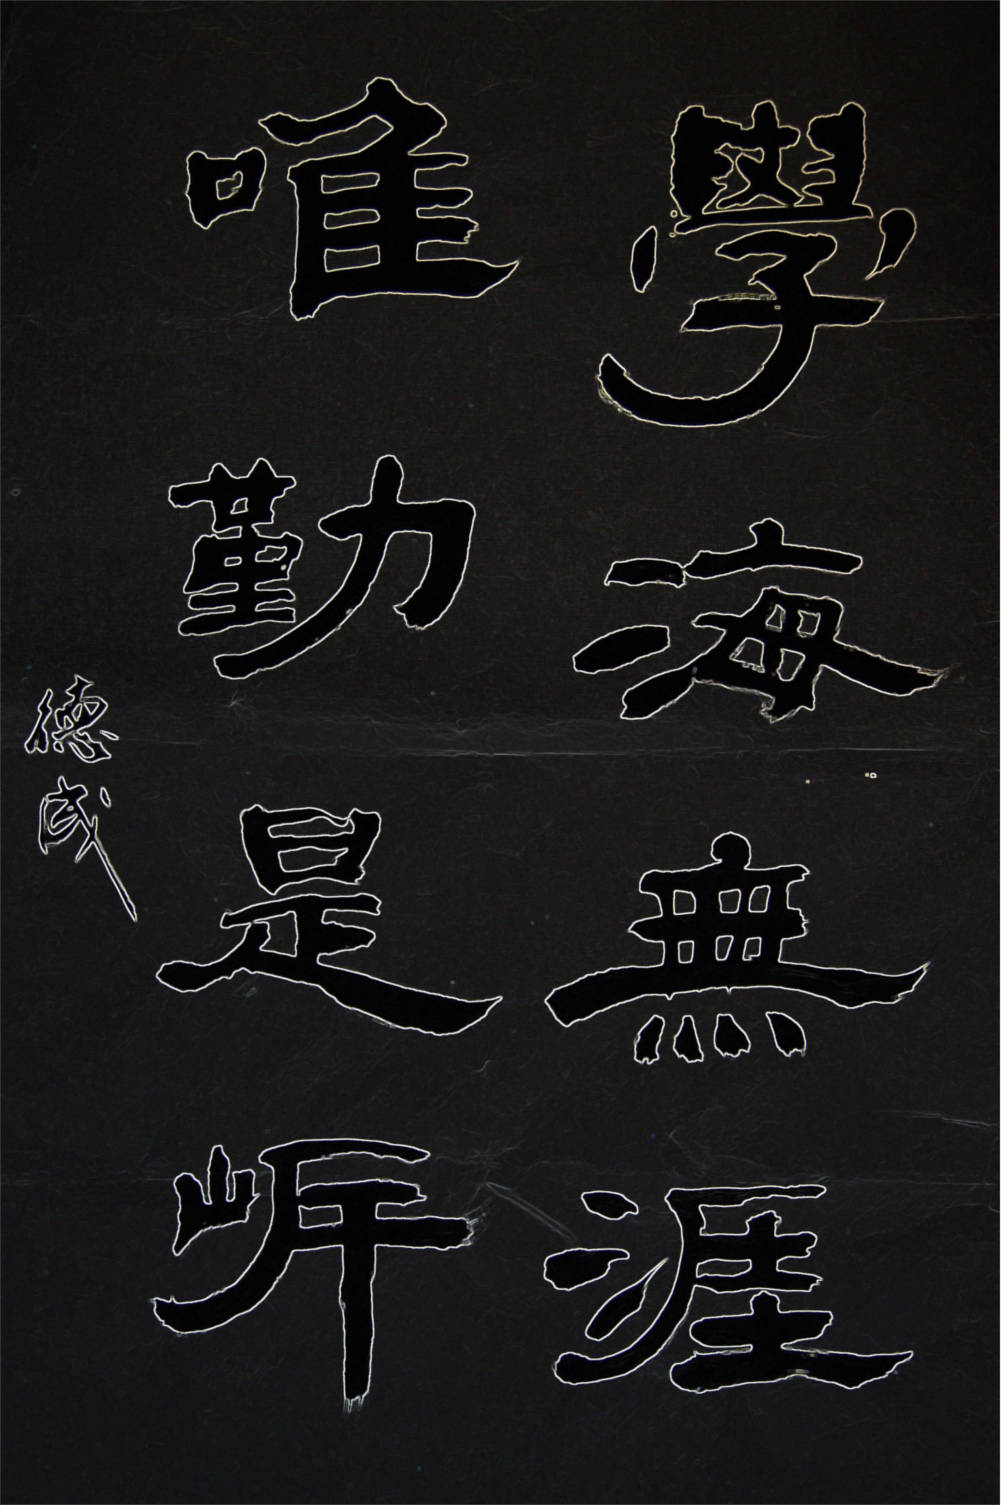 學海無涯
唯勤是岸
德成